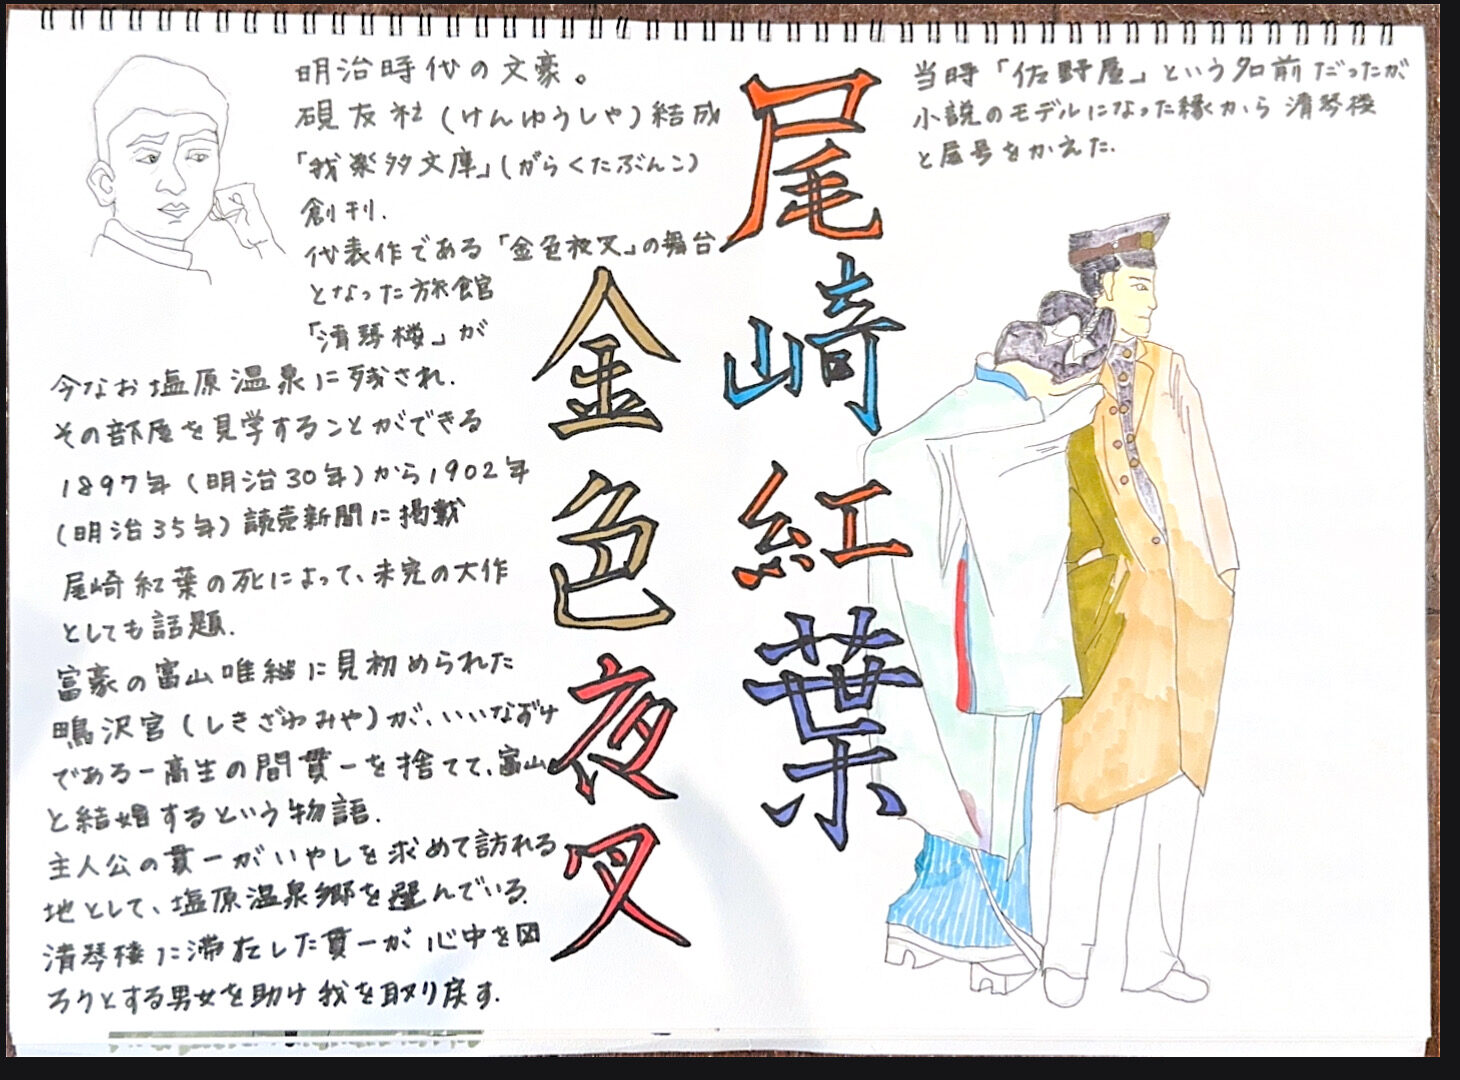 明治時代の文豪。
硯友社(けんゆうしゃ)結成
「我楽多文庫」(がらくたぶんこ)
創刊.
代表作である「金色夜叉」の舞台
となった旅館
「清琴楼」が
今なお塩原温泉に残され.
その部屋を見学することができる
1897年(明治30年)から1902年
(明治35年)読売新聞に掲載
尾崎紅葉の死によって、未完の大作
としても話題.
富豪の富山唯継に見初められた
鴫沢宮(しきざわみや)が、いいなずけ
である一高生の間貫一を捨てて、富山
と結婚するという物語.
主人公の貫一がいやしを求めて訪れる
地として、塩原温泉郷を選んでいる.
清琴楼に滞在した貫一が心中を図
ろうとする男女を助け我を取り戻す.
尾崎紅葉
金色夜叉
当時「佐野屋」という名前だったが
小説のモデルになった縁から清琴楼
と屋号をかえた.